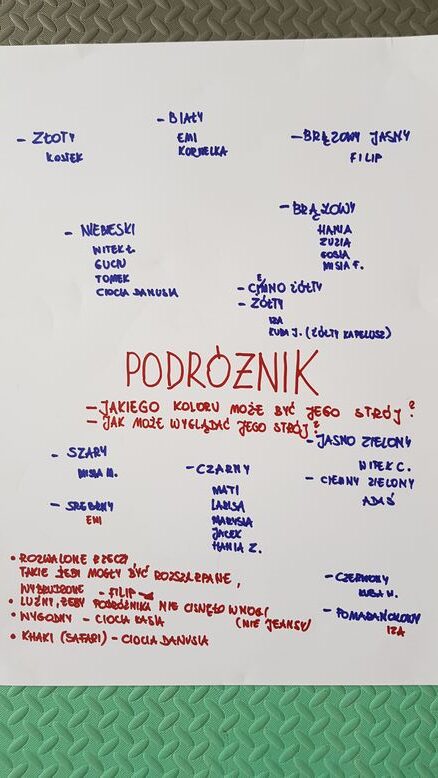 - BIAŁY
EMI
KORNELKA
- ZŁOTY
KOSTEK
- BRĄZOWY JASNY
FILIP
- BRĄZOWY
HANIA
ZUZIA
GOSIA
MISIA F.
- NIEBIESKI
WITEK Ł.
GUCIU
TOMEK
CIOCIA DANUSIA
- CIEMNO ŻÓŁTY
- ŻÓŁTY
IZA
KUBA J. (ŻÓŁTY KAPELUSZ)
PODRÓŻNIK
- JAKIEGO KOLORU MOŻE BYĆ JEGO STRÓJ?
- JAK MOŻE WYGLĄDAĆ JEGO STRÓJ?
- JASNO ZIELONY
WITEK C.
- CIEMNY ZIELONY
ADAŚ
- SZARY
MISIA M.
- CZARNY
MATI
LARISA
MARYSIA
JACEK
HANIA Z.
- SREBRNY
EMI
• ROZWALONE RZECZY
TAKIE ŻEBY MOGŁY BYĆ ROZSZARPANE,
WYBRUDZONE - FILIP
• LUŹNY, ŻEBY PODRÓŻNIKA NIE CISNĘŁO W NOGI
(NIE JEANSY)
• WYGODNY - CIOCIA KASIA
• KHAKI (SAFARI) - CIOCIA DANUSIA
- CZERWONY
KUBA W.
- POMARAŃCZOWY
IZA